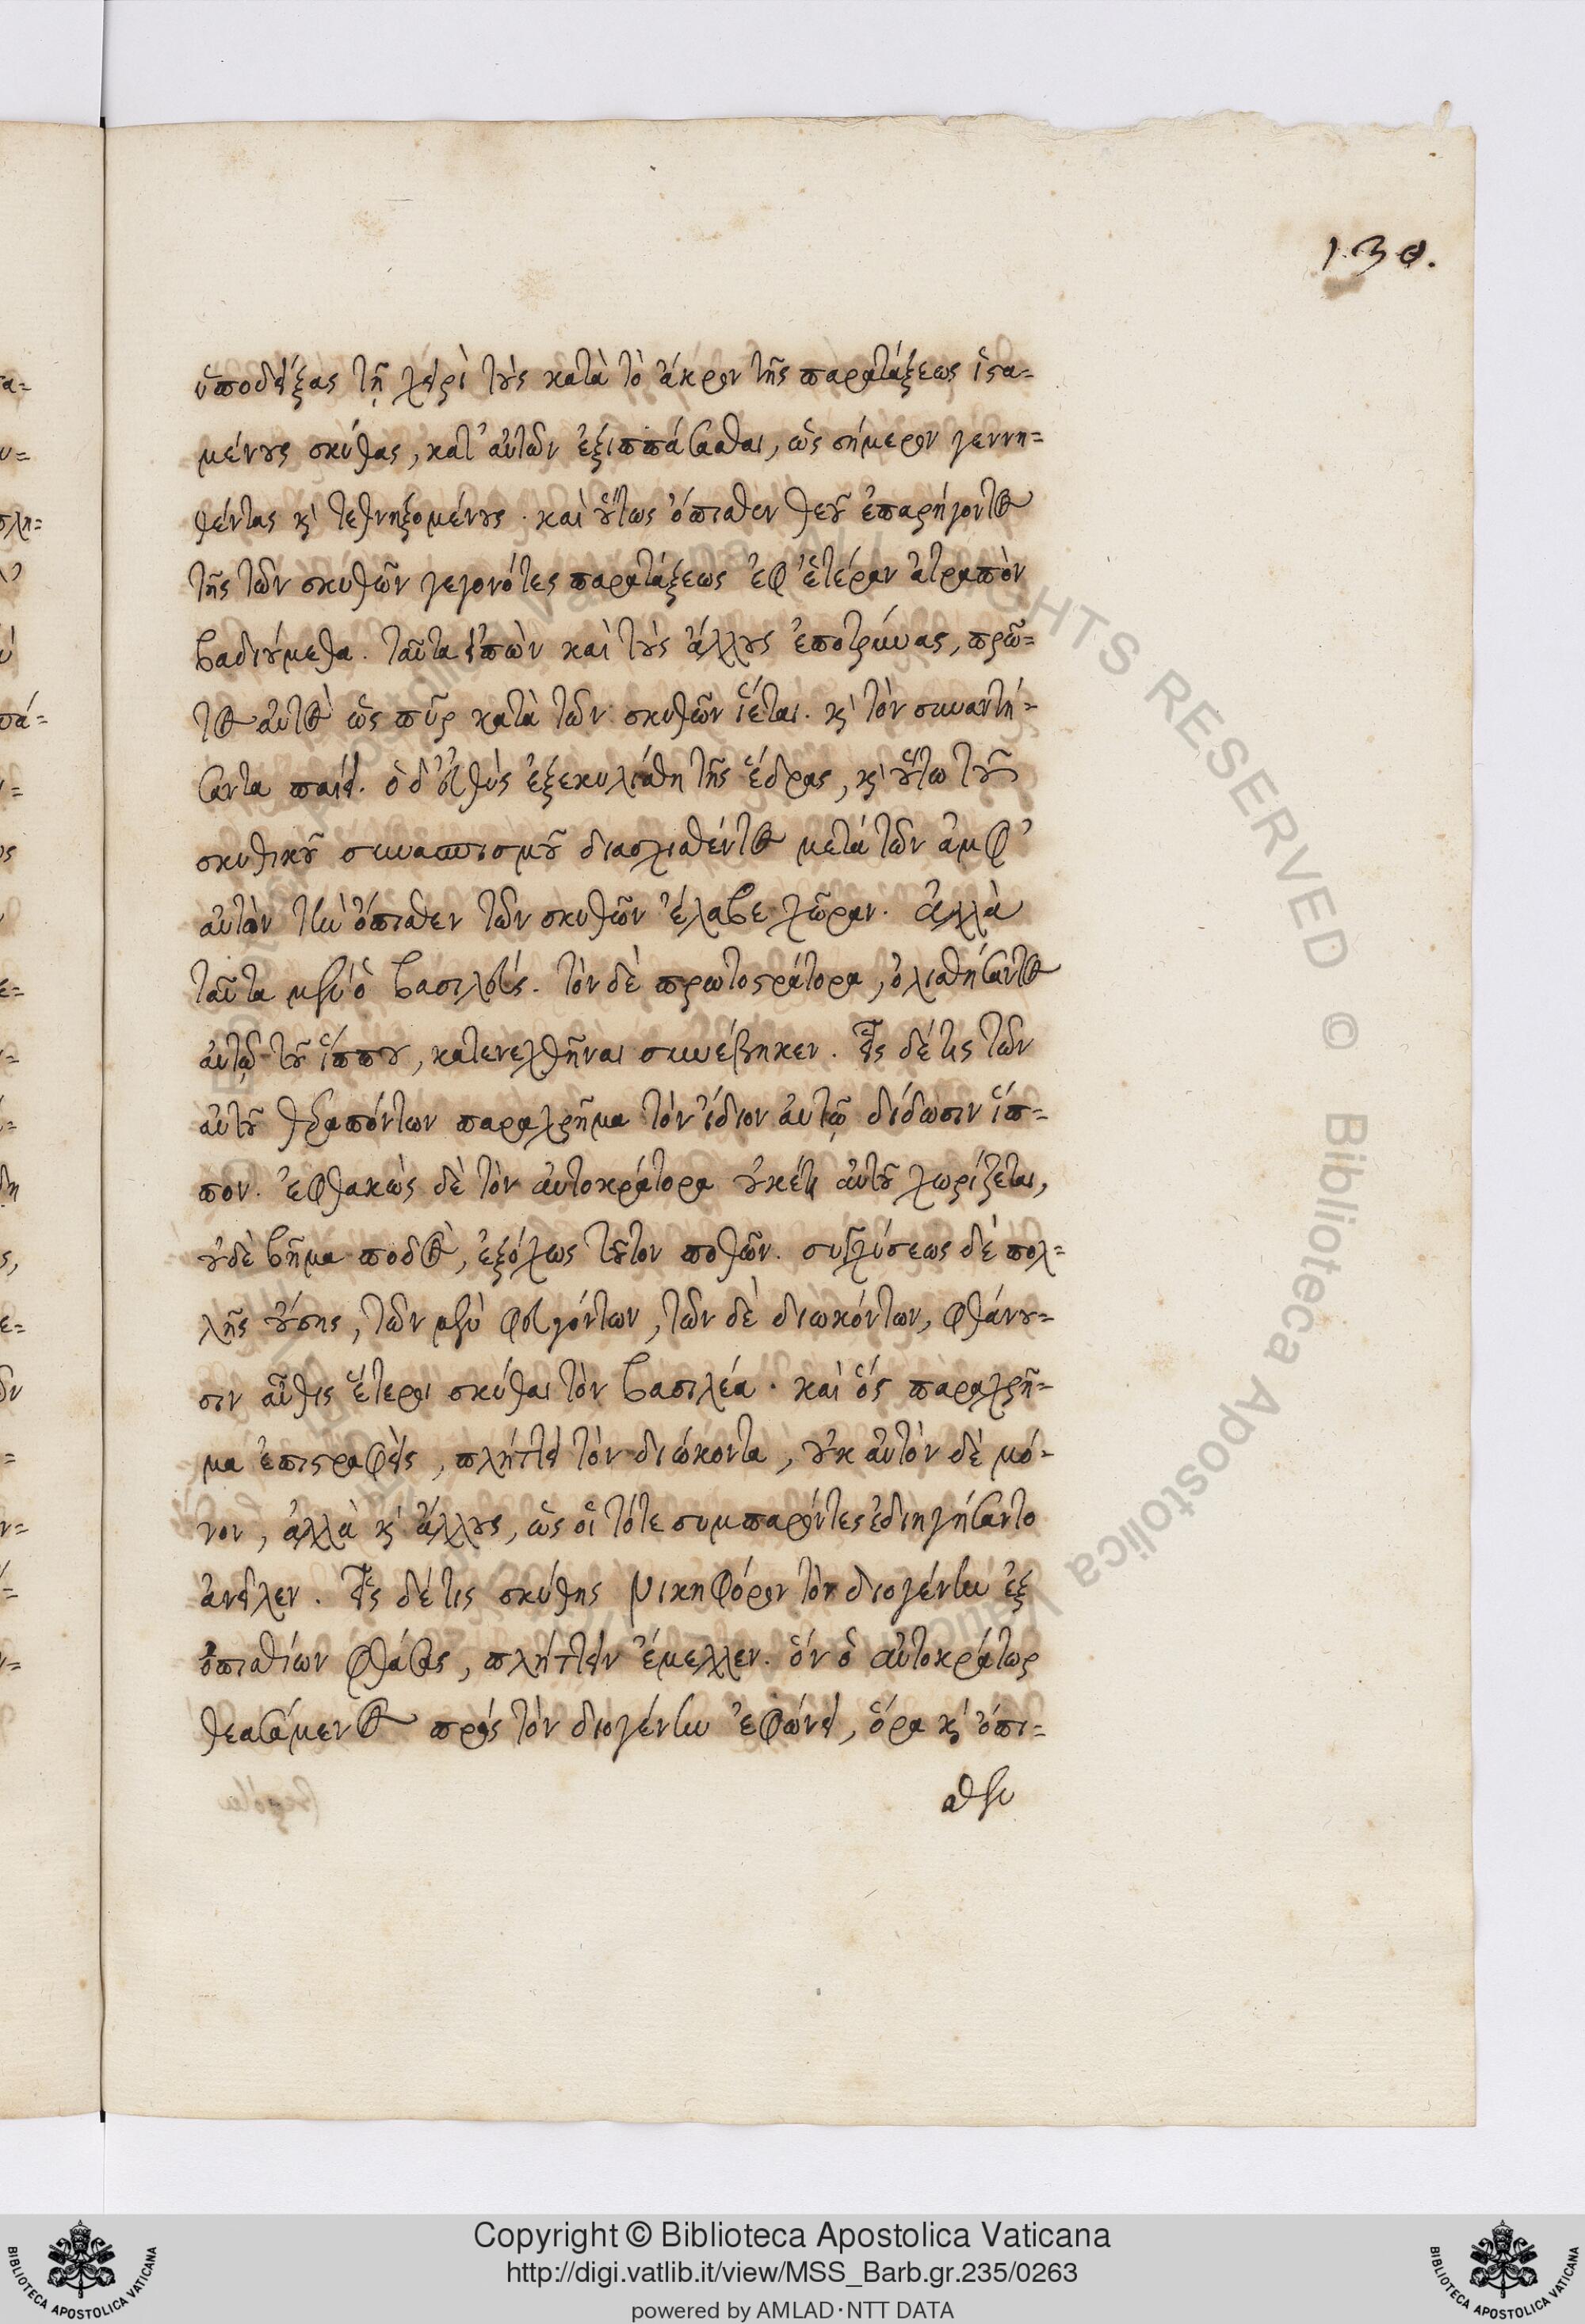 130.
ὑποδείξας τῇ χειρὶ τοὺς κατὰ τὸ ἄκρον τῆς παρατάξεως ἱστα=
μένους σκύθας, κατ' αὐτῶν ἐξιππάσασθαι, ὡς σήμερον γεννη=
θέντας κ' τεθνηξομένους. καὶ οὕτως ὄπισθεν θεοῦ ἐπαρήγοντος
τῆς τῶν σκυθῶν γεγονότες παρατάξεως ἐφ' ἑτέραν ἀτραπὸν
βαδιούμεθα. ταῦτα εἰπὼν καὶ τοὺς ἄλλους ἐποτρύνας, πρῶ=
τος αὐτὸς ὡς πῦρ κατὰ τῶν σκυθῶν ἵεται. κ' τὸν συναντή=
σαντα παίει. ὁ δ' εὐθὺς ἐξεκυλίσθη τῆς ἕδρας, κ' οὕτω τοῦ
σκυθικοῦ συνασπισμοῦ διασχισθέντος μετὰ τῶν ἀμφ'
αὐτὸν τὴν ὄπισθεν τῶν σκυθῶν ἔλαβε χῶραν. ἀλλὰ
ταῦτα μὲν ὁ βασιλεύς. τὸν δὲ πρωτοστράτορα, ὀλισθήσαντος
αὐτῷ τοῦ ἵππου, κατενεχθῆναι συνέβηκεν. εἷς δέ τις τῶν
αὐτοῦ θεραπόντων παραχρῆμα τὸν ἴδιον αὐτῷ δίδωσιν ἵπ=
πον. ἐφθακὼς δὲ τὸν αὐτοκράτορα οὐκέτι αὐτοῦ χωρίζεται,
οὐδὲ βῆμα ποδὸς, ἐξόχως τοῦτον ποθῶν. συγχύσεως δὲ πολ=
λῆς οὔσης, τῶν μὲν φευγόντων, τῶν δὲ διωκόντων, φθάνου=
σιν αὖθις ἕτεροι σκύθαι τὸν βασιλέα. καὶ ὃς παραχρῆ=
μα ἐπιστραφεὶς, πλήττει τὸν διώκοντα, οὐκ αὐτὸν δὲ μό=
νον, ἀλλὰ κ' ἄλλους, ὡς οἱ τότε συμπαρόντες ἐδιηγήσαντο
ἀνεῖλεν. εἷς δέ τις σκύθης νικηφόρον τὸν διογένην ἐξ
ὀπισθίων φθάσας, πλήττειν ἔμελλεν. ὃν ὁ αὐτοκράτωρ
θεασάμενος πρὸς τὸν διογένην ἐφώνει, ὅρα κ' ὄπι=
σθεν
Copyright © Biblioteca Apostolica Vaticana
http://digi.vatlib.it/view/MSS_Barb.gr.235/0263
powered by AMLAD·NTT DATA